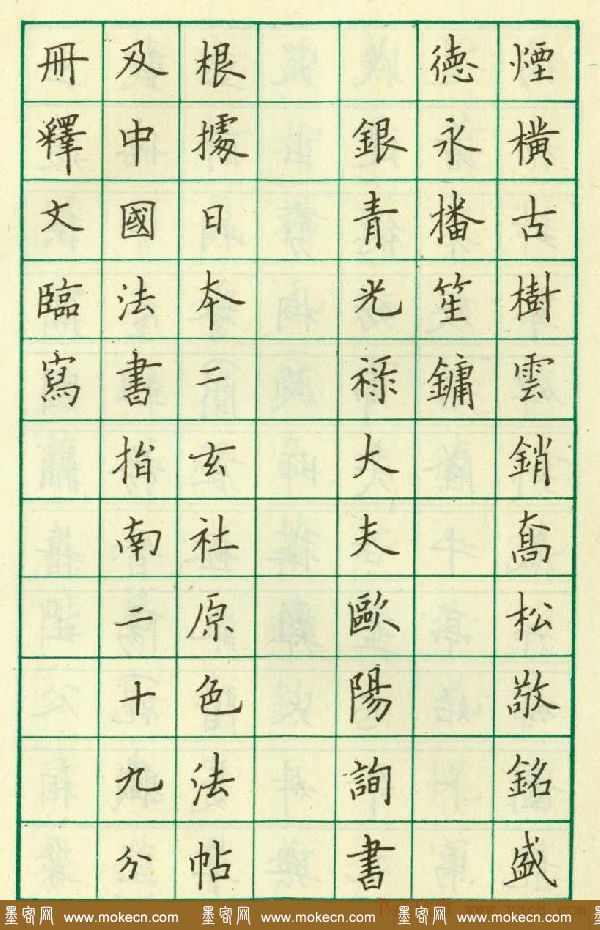 煙橫古樹雲銷喬松敬銘盛
德永播笙鏞
銀青光祿大夫歐陽詢書
根據日本二玄社原色法帖
及中國法書指南二十九分
冊釋文臨寫
墨客网 www.mokecn.com 墨客网 www.mokecn.com 墨客网 www.mokecn.com